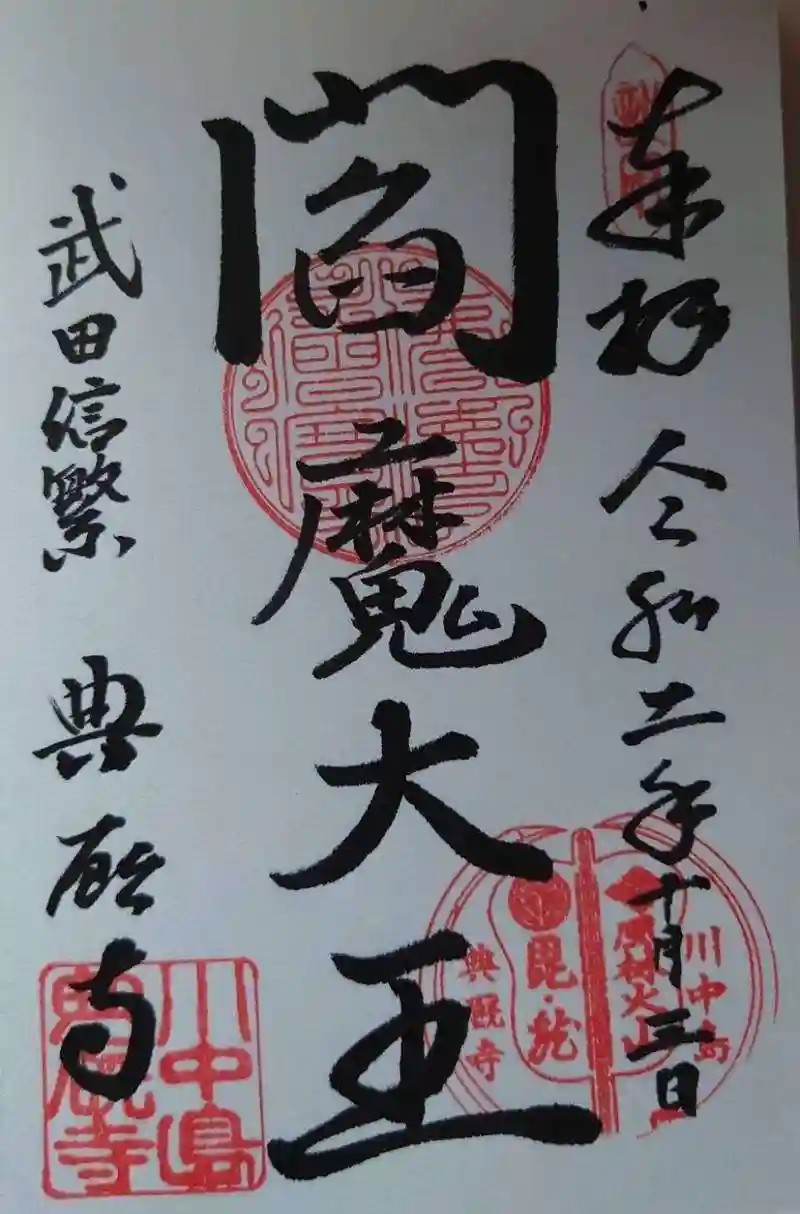 奉拝 令和二年十月三日
閻魔大王
武田信繁 典厩寺
川中島
風林火山
毘・龍
典厩寺
川中島
典厩寺